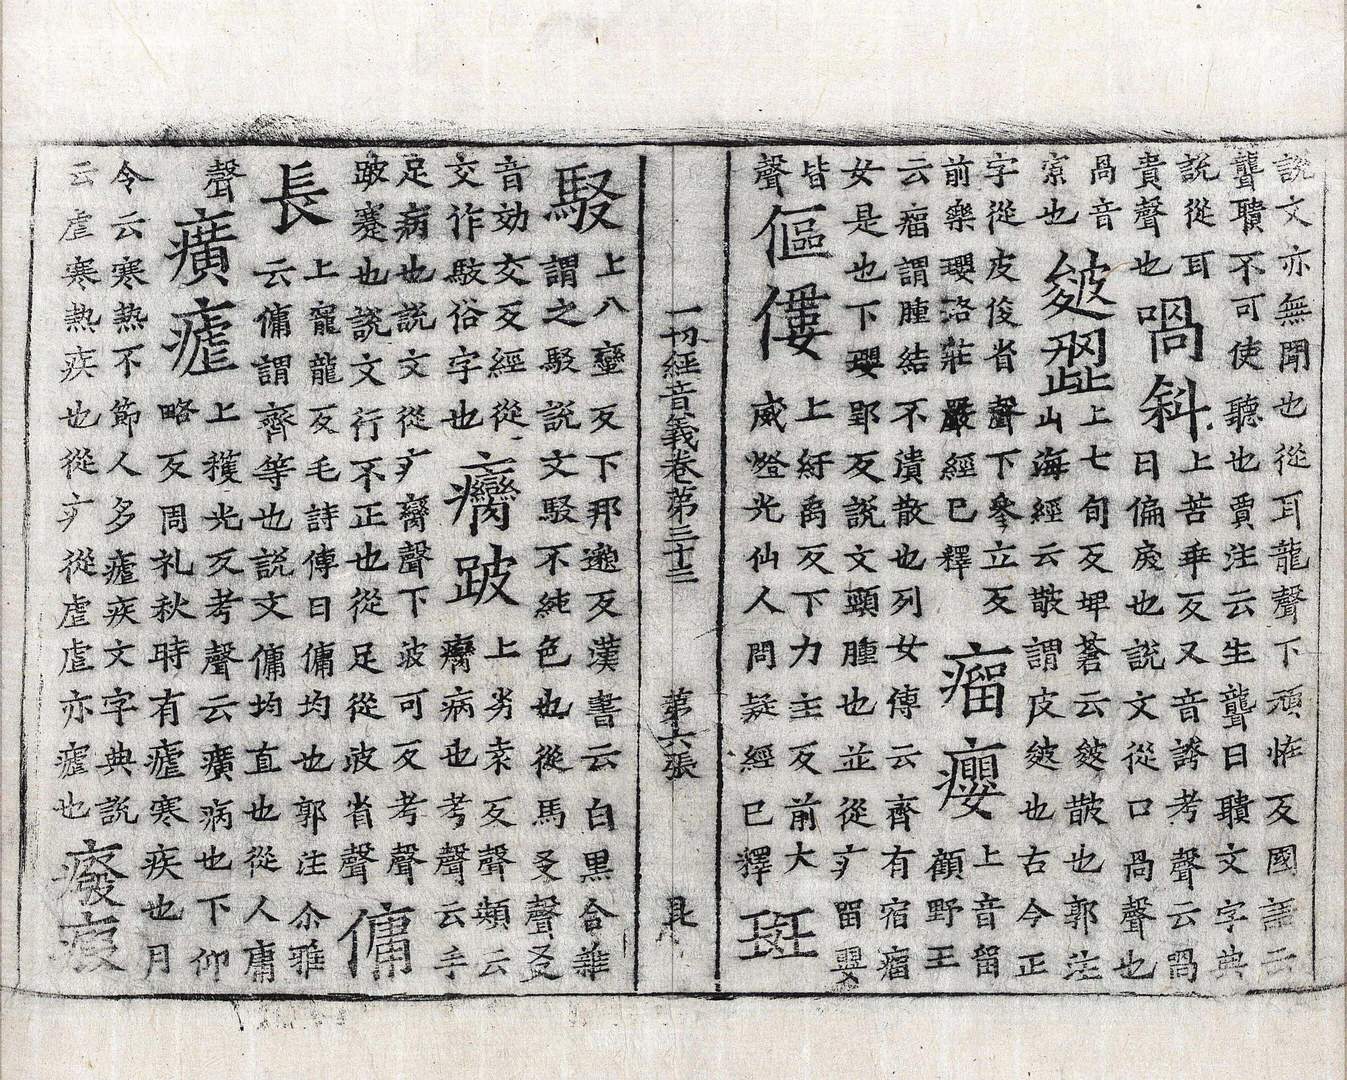 說文亦無聞也從耳龍聲下頑恠反國語云
聾聵不可使聽也賈注云生聾曰聵文字典
說從耳貴聲也
喎斜
上苦乖反又音誇考聲云喎
曰偏戾也說文從口咼聲也
咼音
皴澀
上七旬反埤蒼云皴皵也郭注
山海經云皵謂皮皴也古今正
字從皮俊省聲下參立反
瘤癭
上音留
顧野王
云瘤謂腫結不潰散也列女傳云齊有宿瘤
女是也下癭郢反說文頸腫也並從疒留嬰
皆聲
傴僂
上紆禹反下力主反前大
威燈光仙人問疑經已釋
斑
一切經音義卷第三十三　第六張
駮
上八蠻反下邦邈反漢書云白黑合雜
謂之駮說文駮不純色也從馬爻聲爻
音効交反經從
交作駁俗字也
癵跛
上劣袁反聲類云
癵病也考聲云手
足病也說文從疒臠聲下波可反考聲
跛蹇也說文行不正也從足從波省聲
傭
長
上寵龍反毛詩傳曰傭均也郭注尒雅
云傭謂齊等也說文傭均直也從人庸
聲
癀瘧
上穫光反考聲云癀病也下仰
略反周礼秋時有瘧寒疾也月
令云寒熱不節人多瘧疾文字典說
云虐寒熱疾也從疒從虐虐亦瘧也
癈